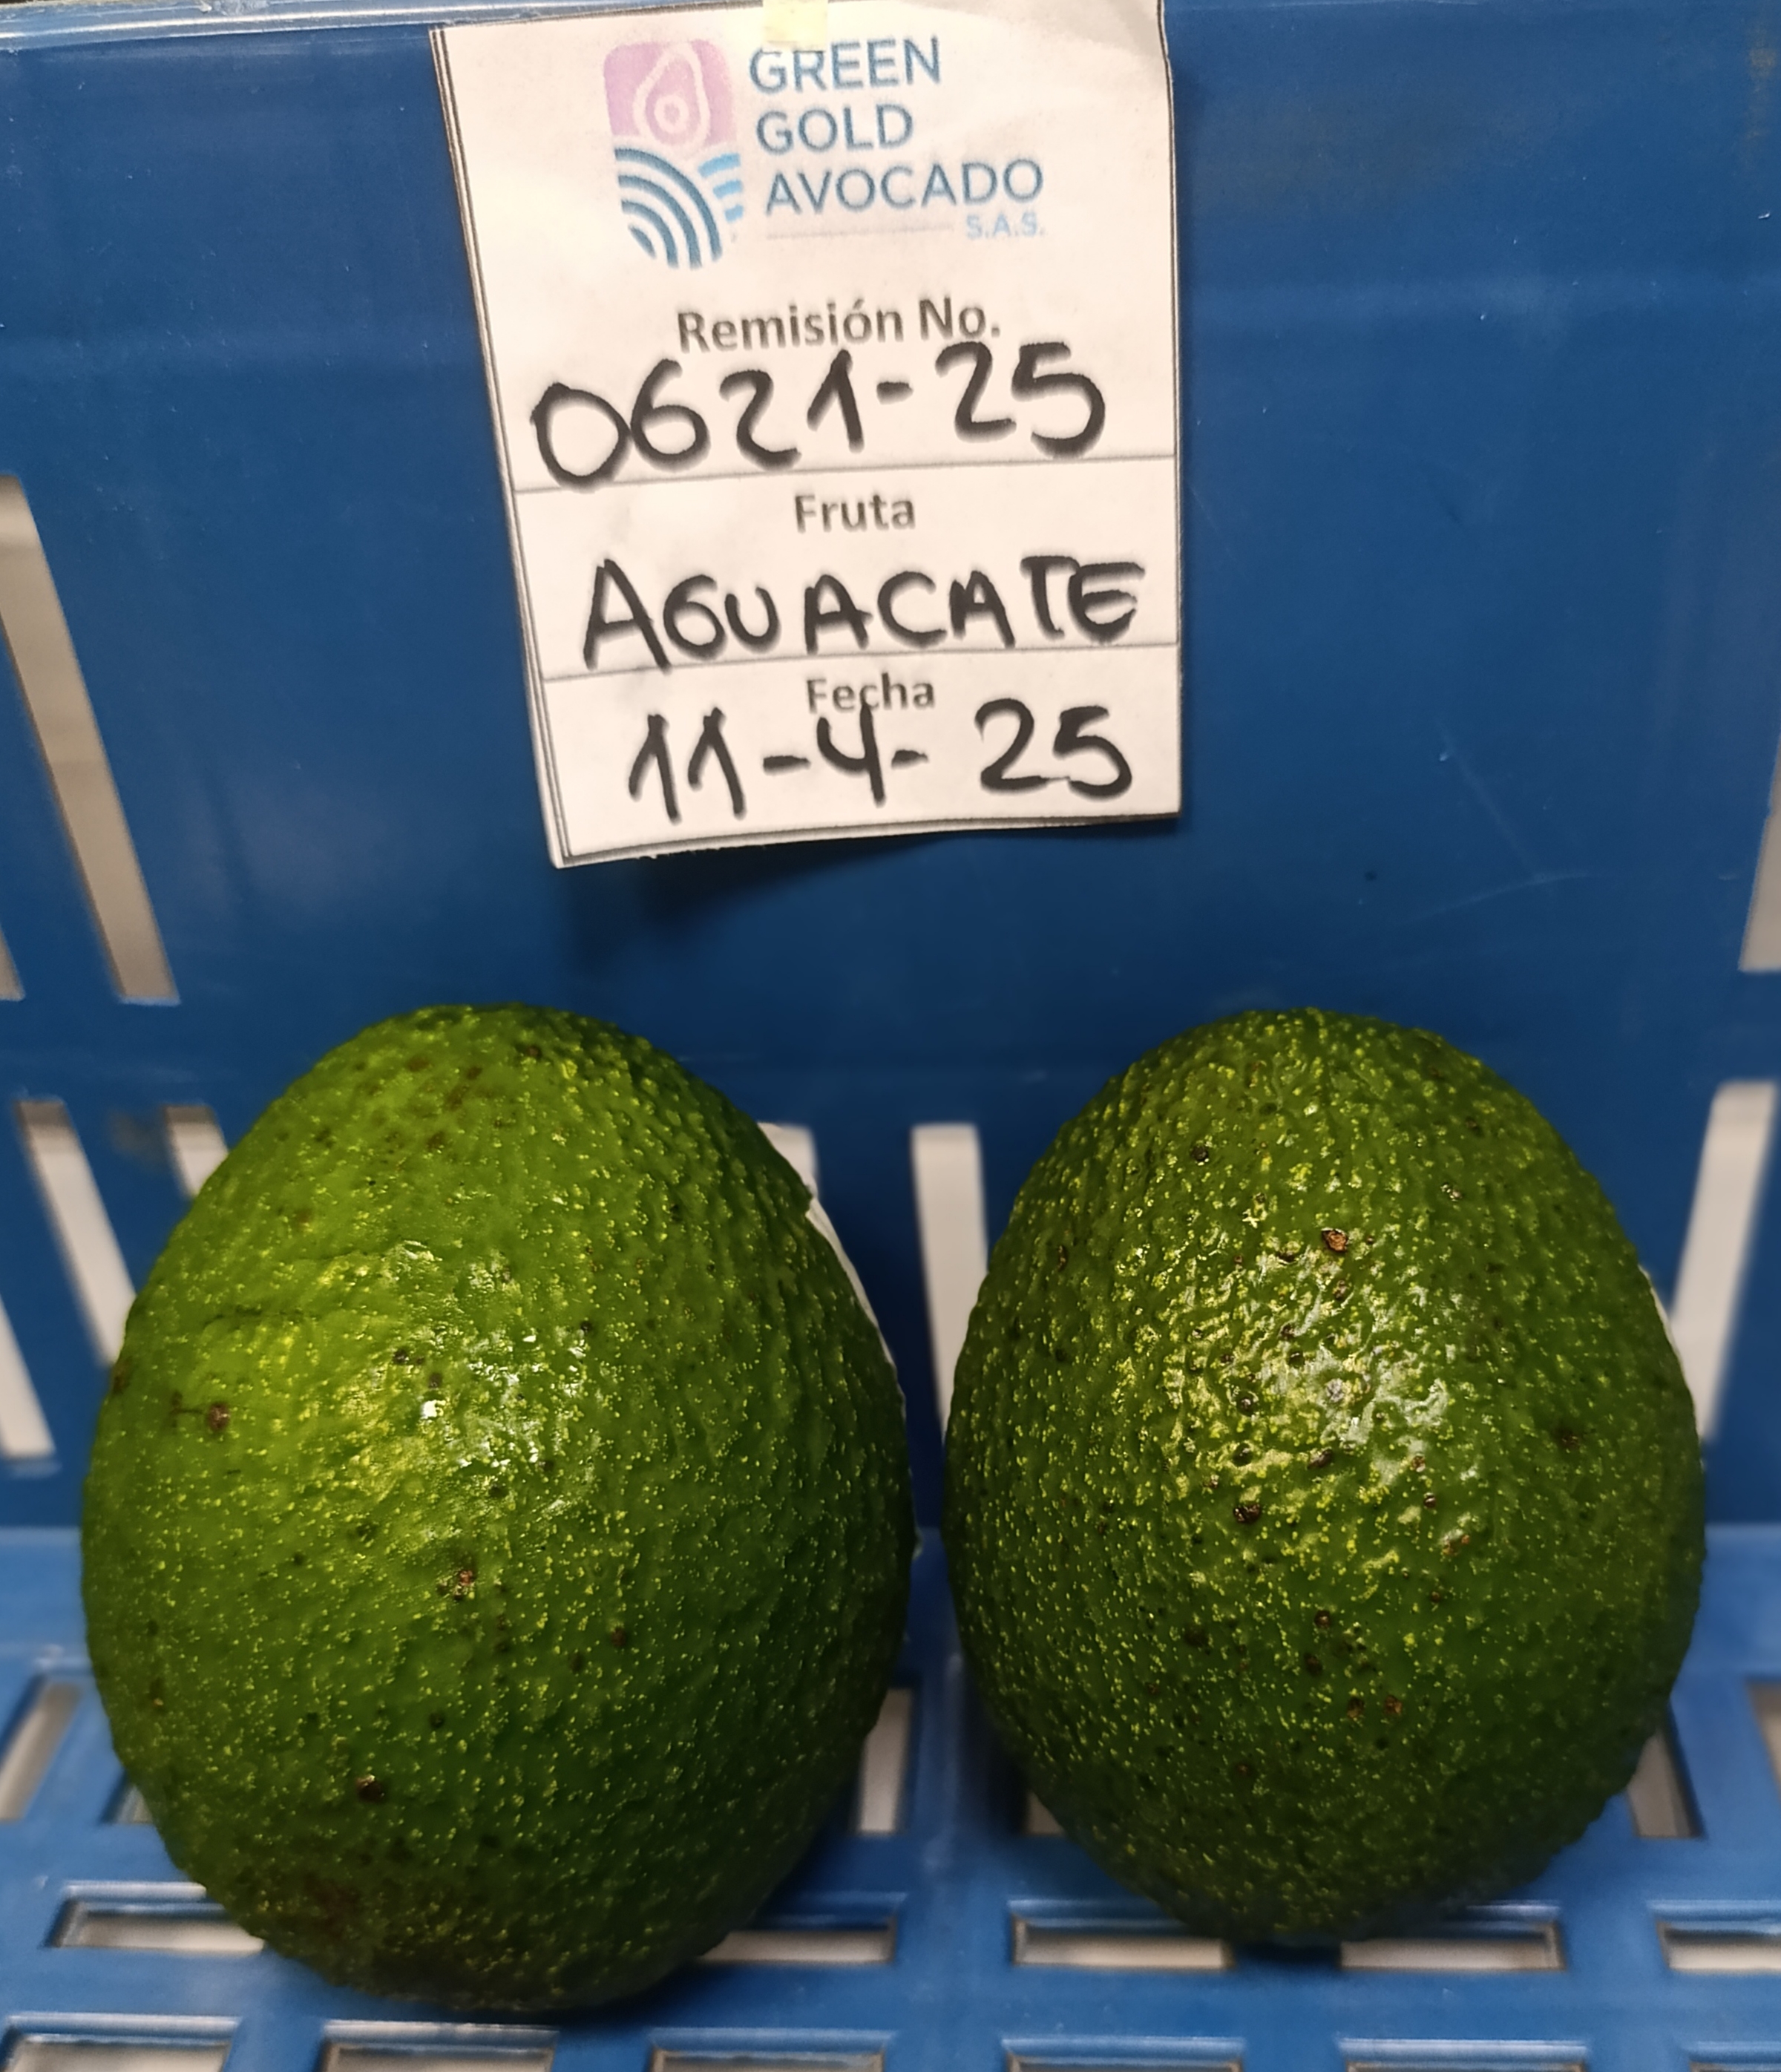 GREEN
GOLD
AVOCADO
S.A.S.
Remisión No.
0621-25
Fruta
AGUACATE
Fecha
11-4-25